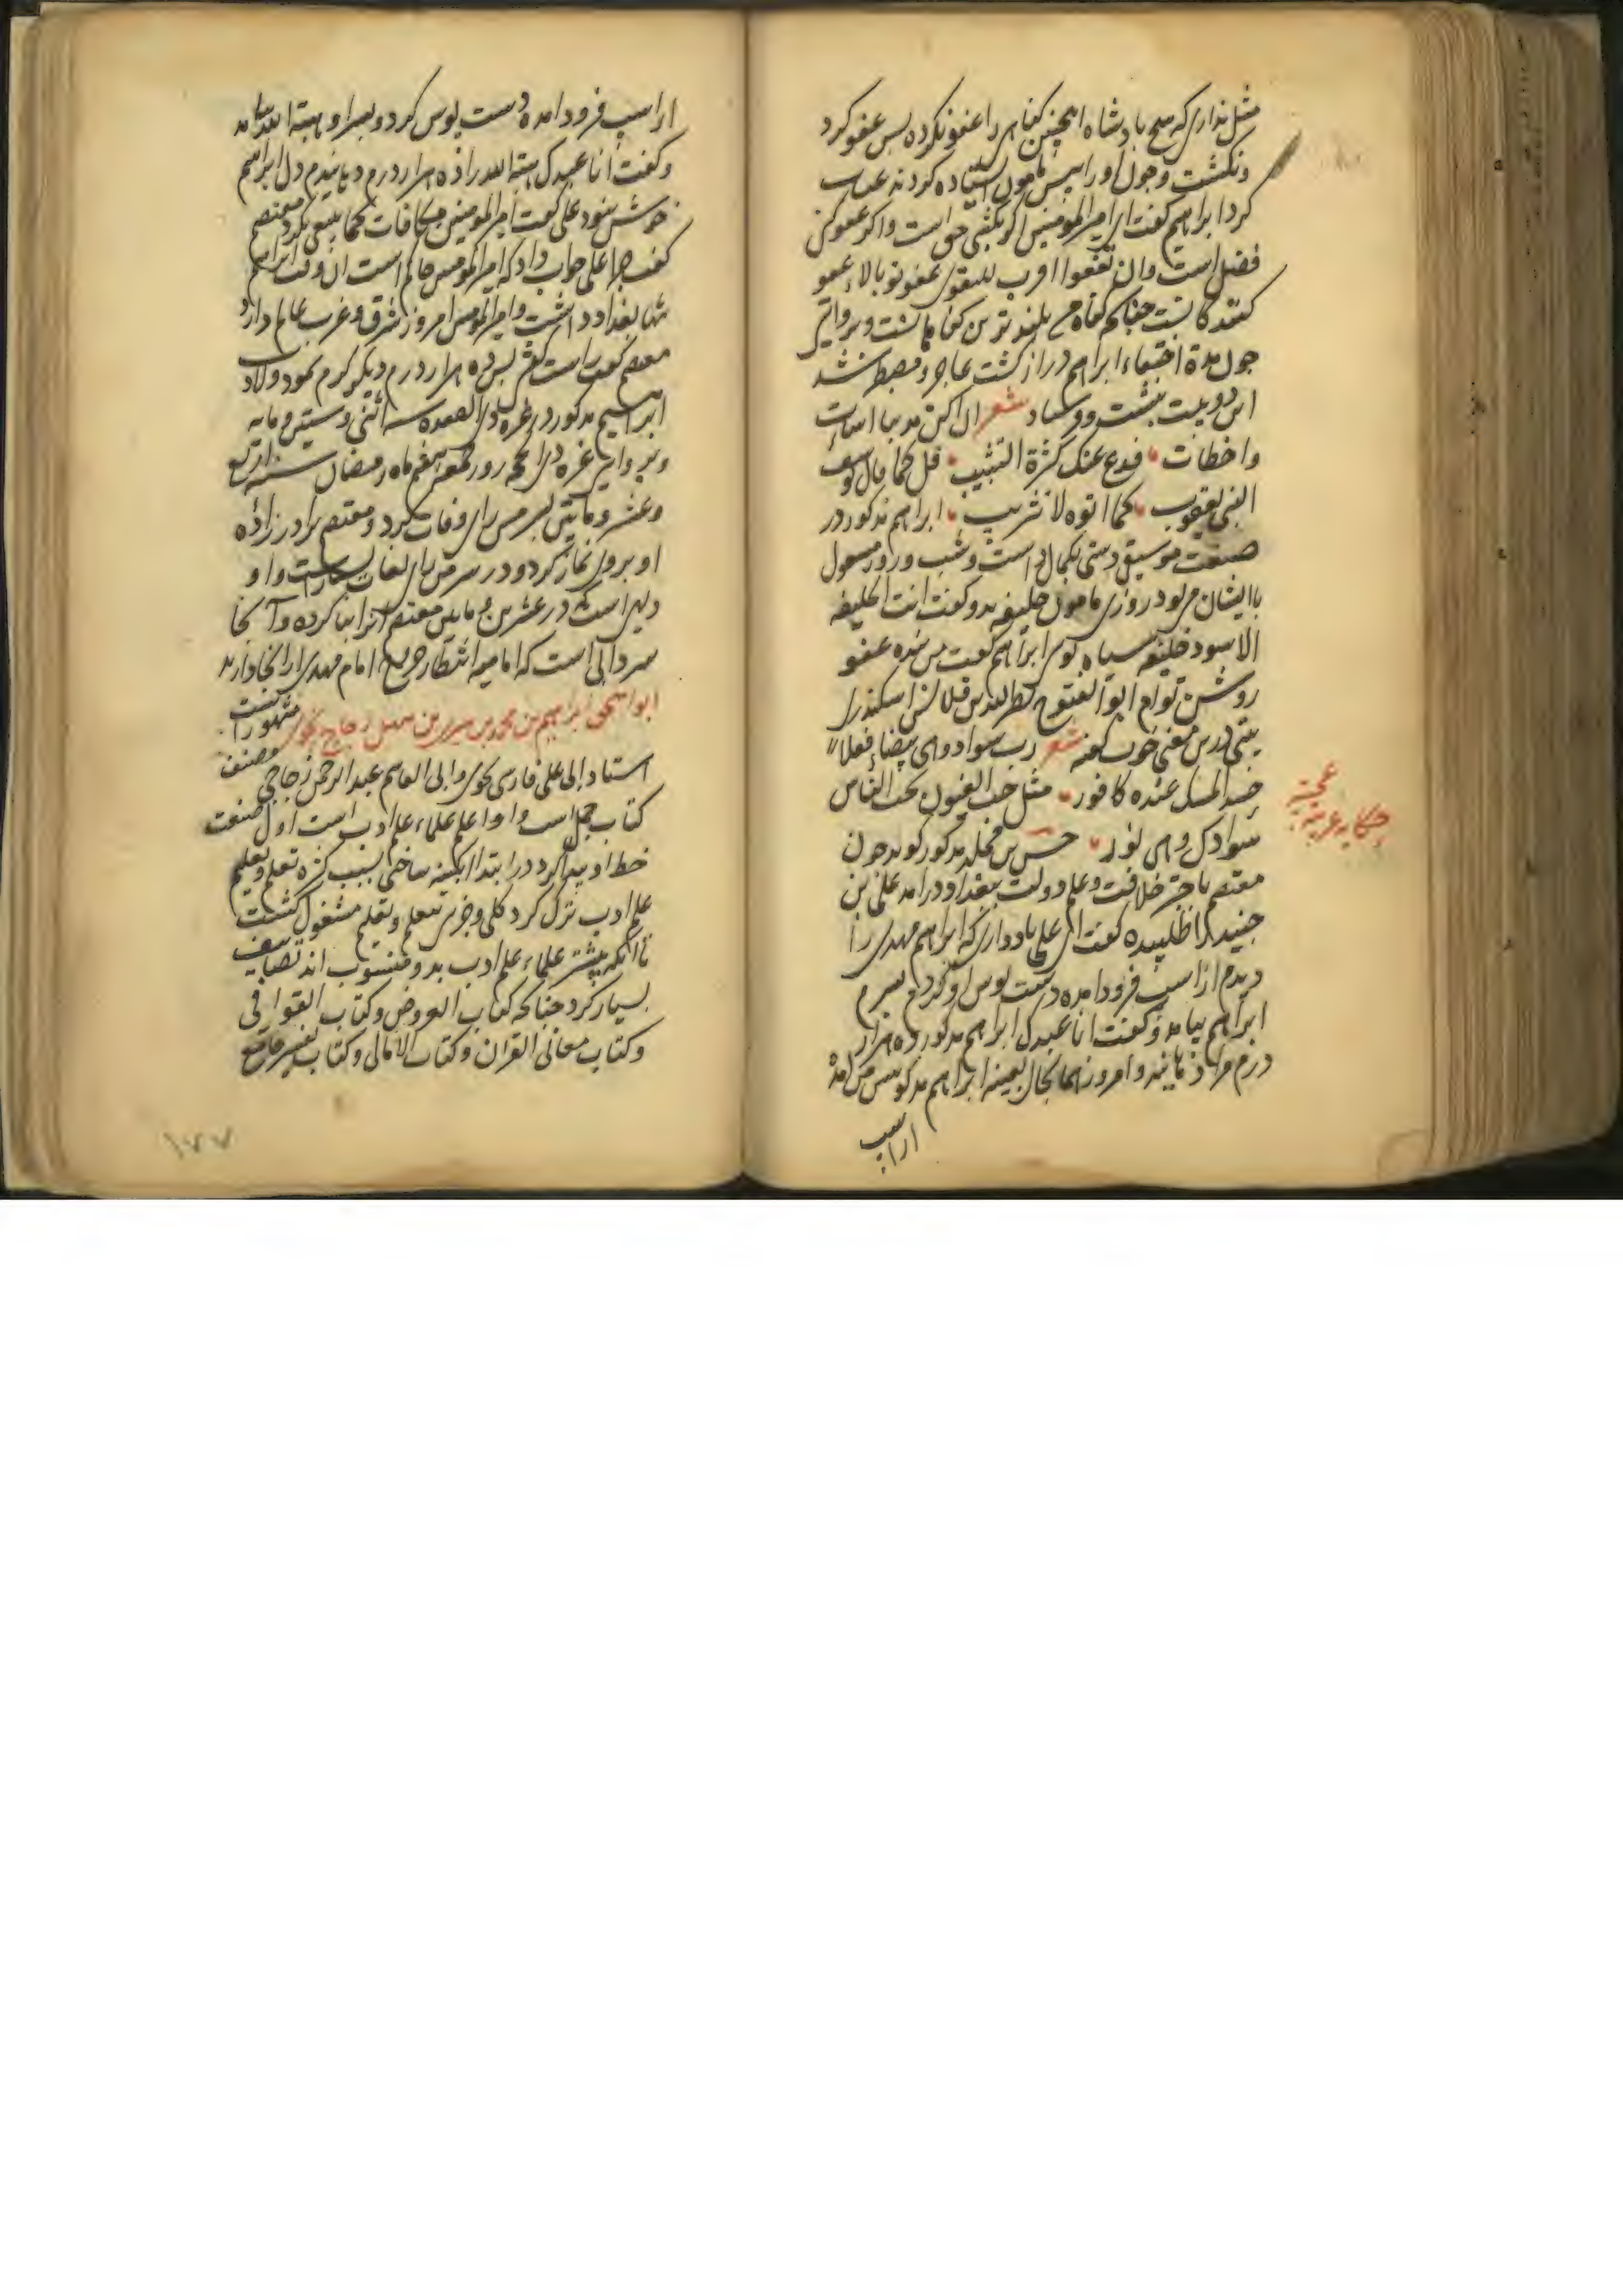 مثل نداری که هیچ بادشاه اینچنین کناهی را عفو نکرده پس عفو کرد
ونکشت وچون او را پیش مامون استاده کردند عتاب
کرد ابراهیم کفت ای امیر المومنین اکر بکشی حق است واکر عفو کنی
فضل است وان تعفوا اقرب للتقوی عفو تو بالاء عفو
کنندکانست چنانکه کناه من بلندترین کناهانست وبروایتی
چون مدة اختفاء ابراهیم دراز کشت عاجز ومضطر شد
این دو بیت بنشت وفرستاد شعر ان اکن مذنبا اسات
واخطات فدع عنک کثرة التثریب قل کما قال یوسف
لبنی یعقوب کما اتوه لا تثریب ابراهیم مذکور در
صنعت موسیقی دستی بکمال داشت وشب وروز مشغول
باایشان می بود روزی مامون خلیفه بدو کفت انت الخلیفه
الاسود خلیفه سیاه توی ابراهیم کفت من بنده عفو
روشن توام ابو الفتوح نصر الله بن قلاقس اسکندری
بیتی درین معنی خوب کفته شعر رب سوداء وهی بیضاء فعلا
حسد المسک عنده کافور مثل حب العیون یحسب الناس
سوادا وهی نور حسن بن مخلد مذکور کوید چون
معتصم باجتر خلافت وعلم دولت ببغداد درامد علی بن
جنید را طلبیده کفت ای علی یاد داری که ابراهیم مهدی را
دیدم از اسب فرود امده دست بوس او کردم وپسرم
ابراهیم بیامد وکفت انا عبدک ابراهیم مذکور ده هزار
درم مرا دهانید وامروز همانجا بعینه ابراهیم مذکور پیش من امد
از اسب
حکایه غریبه عجیبه
از اسب فرود امده دست بوس کرد وپسر او هبة الله بیامد
وکفت انا عبدک هبة الله را ده هزار درم دهانیدم دل ابراهیم
خوش نبود علی کفت امیر المومنین مکافات کما ینبغی نکرد معتصم
کفت چرا علی جواب داد که امیر المومنین حاکم است ان وقت ابراهیم
تنها بغداد داشت وامیر المومنین امروز شرق وغرب عالم دارد
معتصم کفت راست کفتی پس ده هزار درم دیکر کرم نمود ولادت
ابراهیم مذکور در غره ذی القعده سنه اثنی وستین ومایه
وبروایتی غره ذی الحجه روز جمعه هفتم ماه رمضان سنه اربع
وعشرین ومایتین بسر من رای وفات کرد ومعتصم برادر زاده
او بروی نماز کرد ودر سر من رای لغات بسیار است واو
دیهی است که در عشرین ومایتین معتصم انرا بنا کرده وآنجا
سردابی است که امامیه انتظار خروج امام مهدی از انجا دارند
ابو اسحق ابراهیم بن محمد بن سری بن سهل زجاج نحوی مشهور است
استاد ابی علی فارسی نحوی وابی القاسم عبد الرحمن زجاجی مصنف
کتاب جمل است واو اعلم علماء علم ادب است اول صنعت
خط او پیدا کرد در ابتدا ابکینه ساختی بسبب کثرة تعلم وتعلیم
علم ادب ترک کرد کلی وجزی بتعلم وتعلیم مشغول کشت
تا آنکه بیشتر علماء علم ادب بدو منسوب اند تصانیف
بسیار کرد چنانکه کتاب العروض وکتاب القوافی
وکتاب معانی القران وکتاب الامالی وکتاب تفسیر جامع
۱۷۷